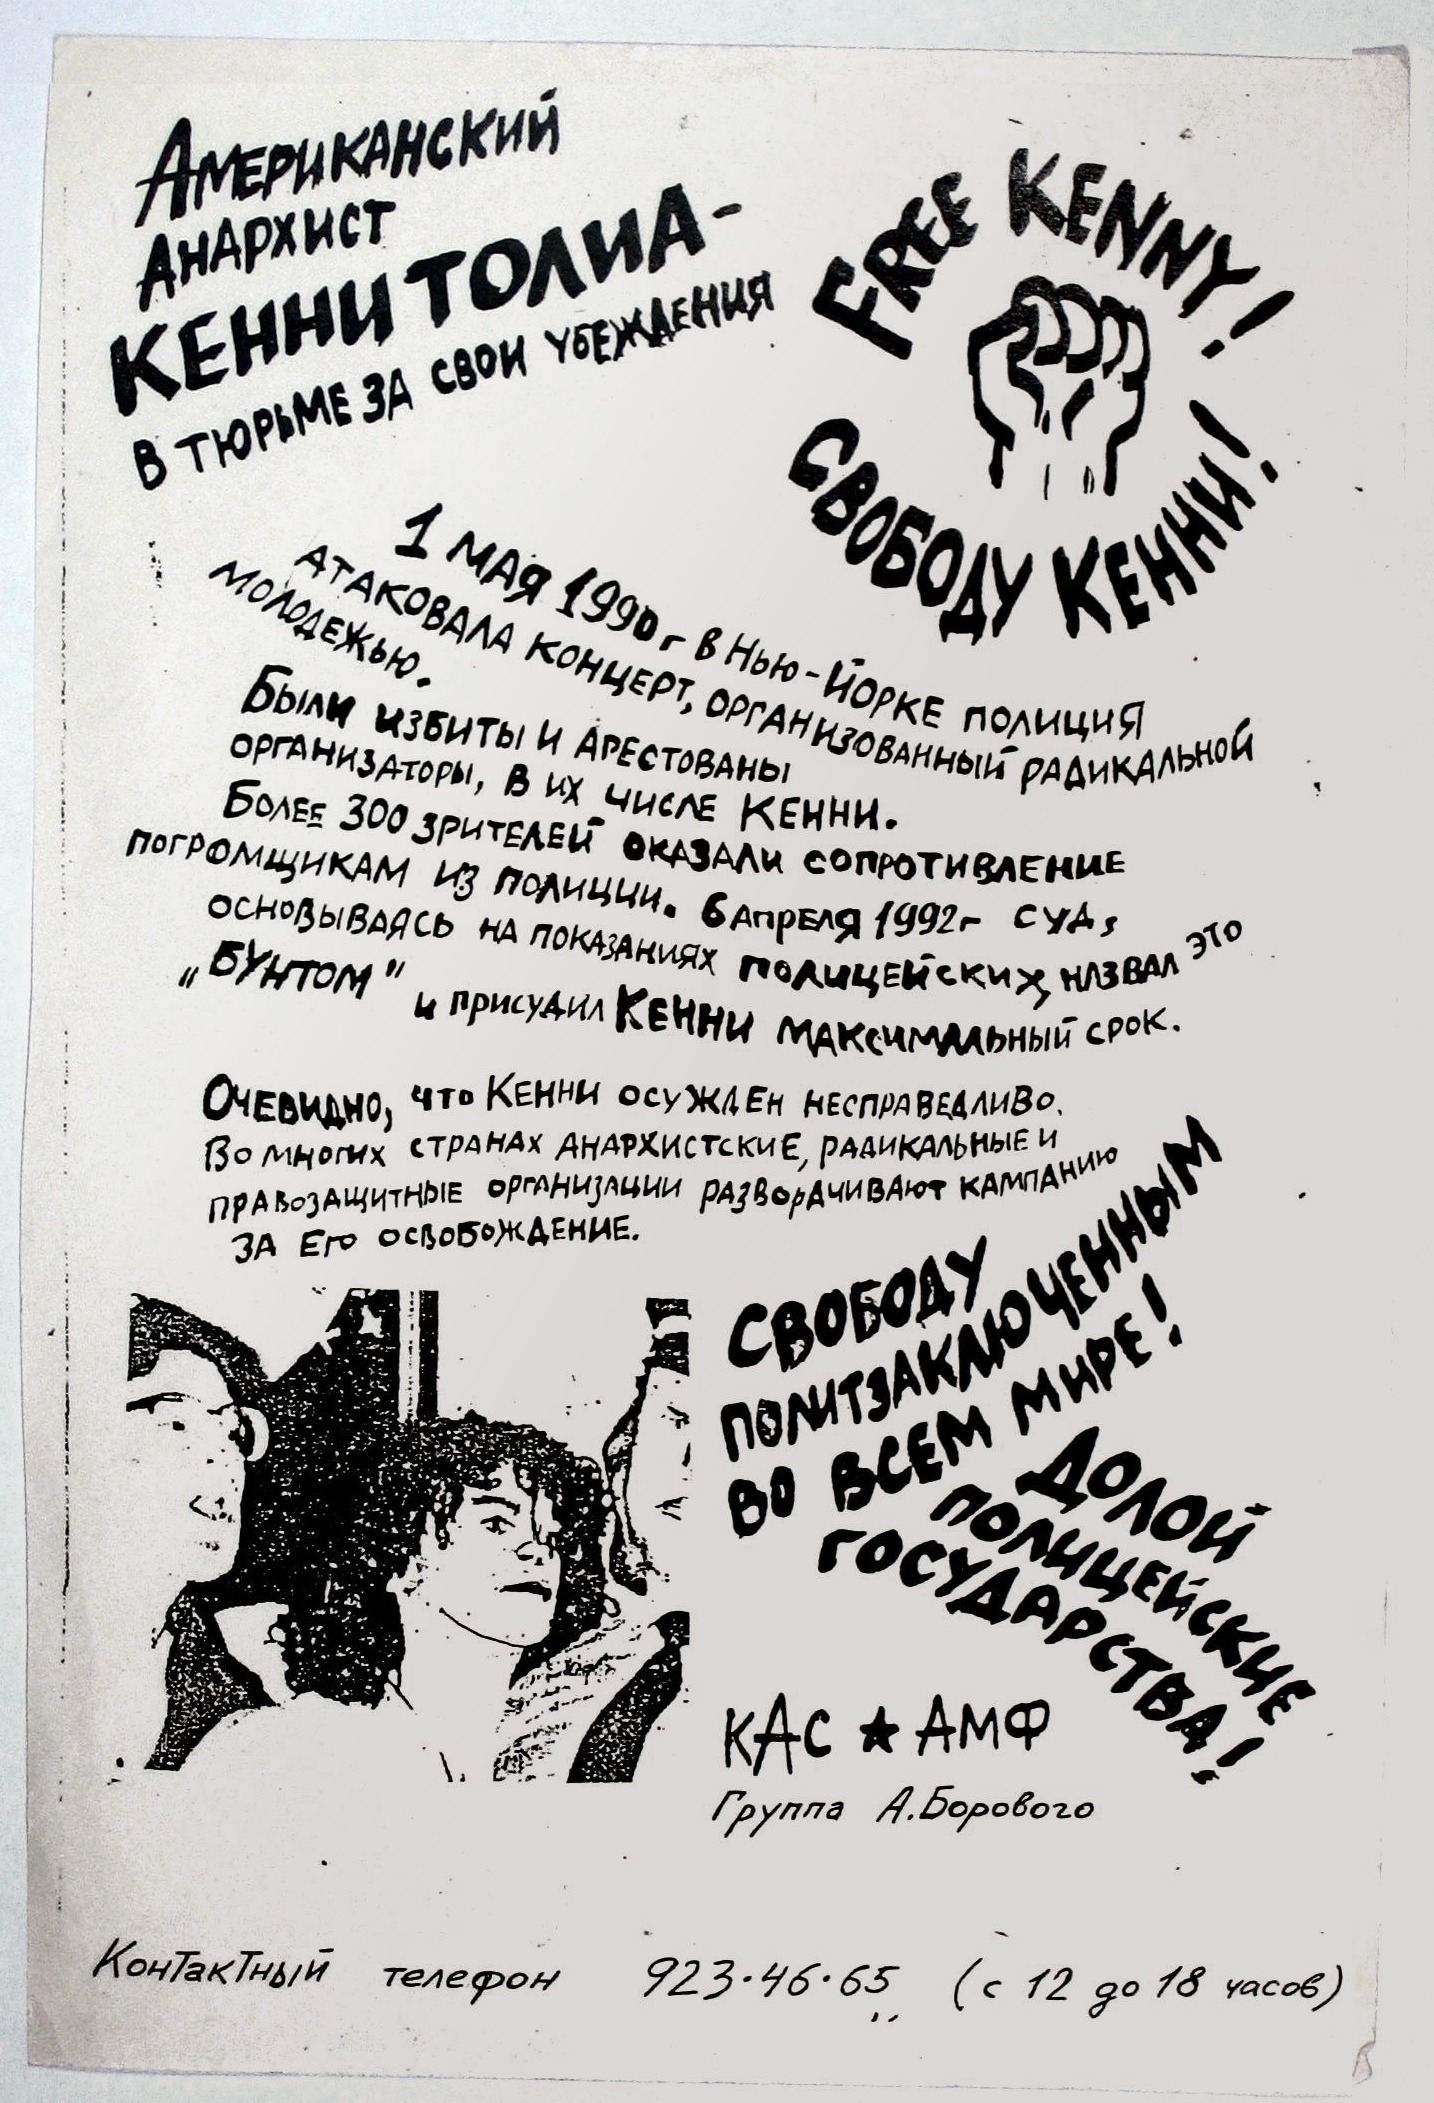 Американский
анархист
Кенни Толиа-
в тюрьме за свои убеждения
FREE KENNY!
Свободу Кенни!
1 мая 1990г в Нью-Йорке полиция
атаковала концерт, организованный радикальной
молодежью.
Были избиты и арестованы
организаторы, в их числе Кенни.
Более 300 зрителей оказали сопротивление
погромщикам из полиции. 6 апреля 1992г суд,
основываясь на показаниях полицейских, назвал это
„Бунтом” и присудил Кенни максимальный срок.
Очевидно, что Кенни осужден несправедливо.
Во многих странах анархистские, радикальные и
правозащитные организации разворачивают кампанию
за его освобождение.
Свободу
политзаключенным
во всем мире!
Долой
полицейские
государства!
КАС ★ АМФ
Группа А.Борового
Контактный телефон 923·46·65 (с 12 до 18 часов)
В